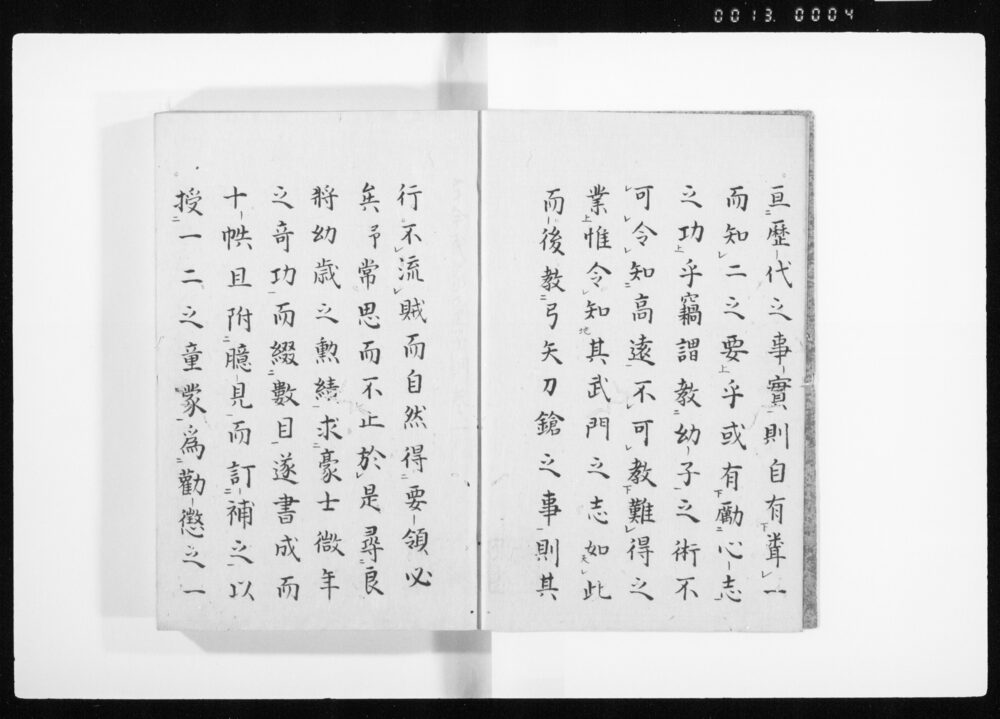 0013.0004
亘歴代之事實則自有聾一
而知二之要乎或有勵心志
之功乎竊謂教幼子之術不
可令知高遠不可教難得之
業惟令知其武門之志如此
而後教弓矢刀鎗之事則其
行不流賊而自然得要領必
矣予常思而不止於是尋良
將幼歳之勲績求豪士微年
之奇功而綴數目遂書成而
十帙且附臆見而訂補之以
授一二之童蒙爲勸懲之一